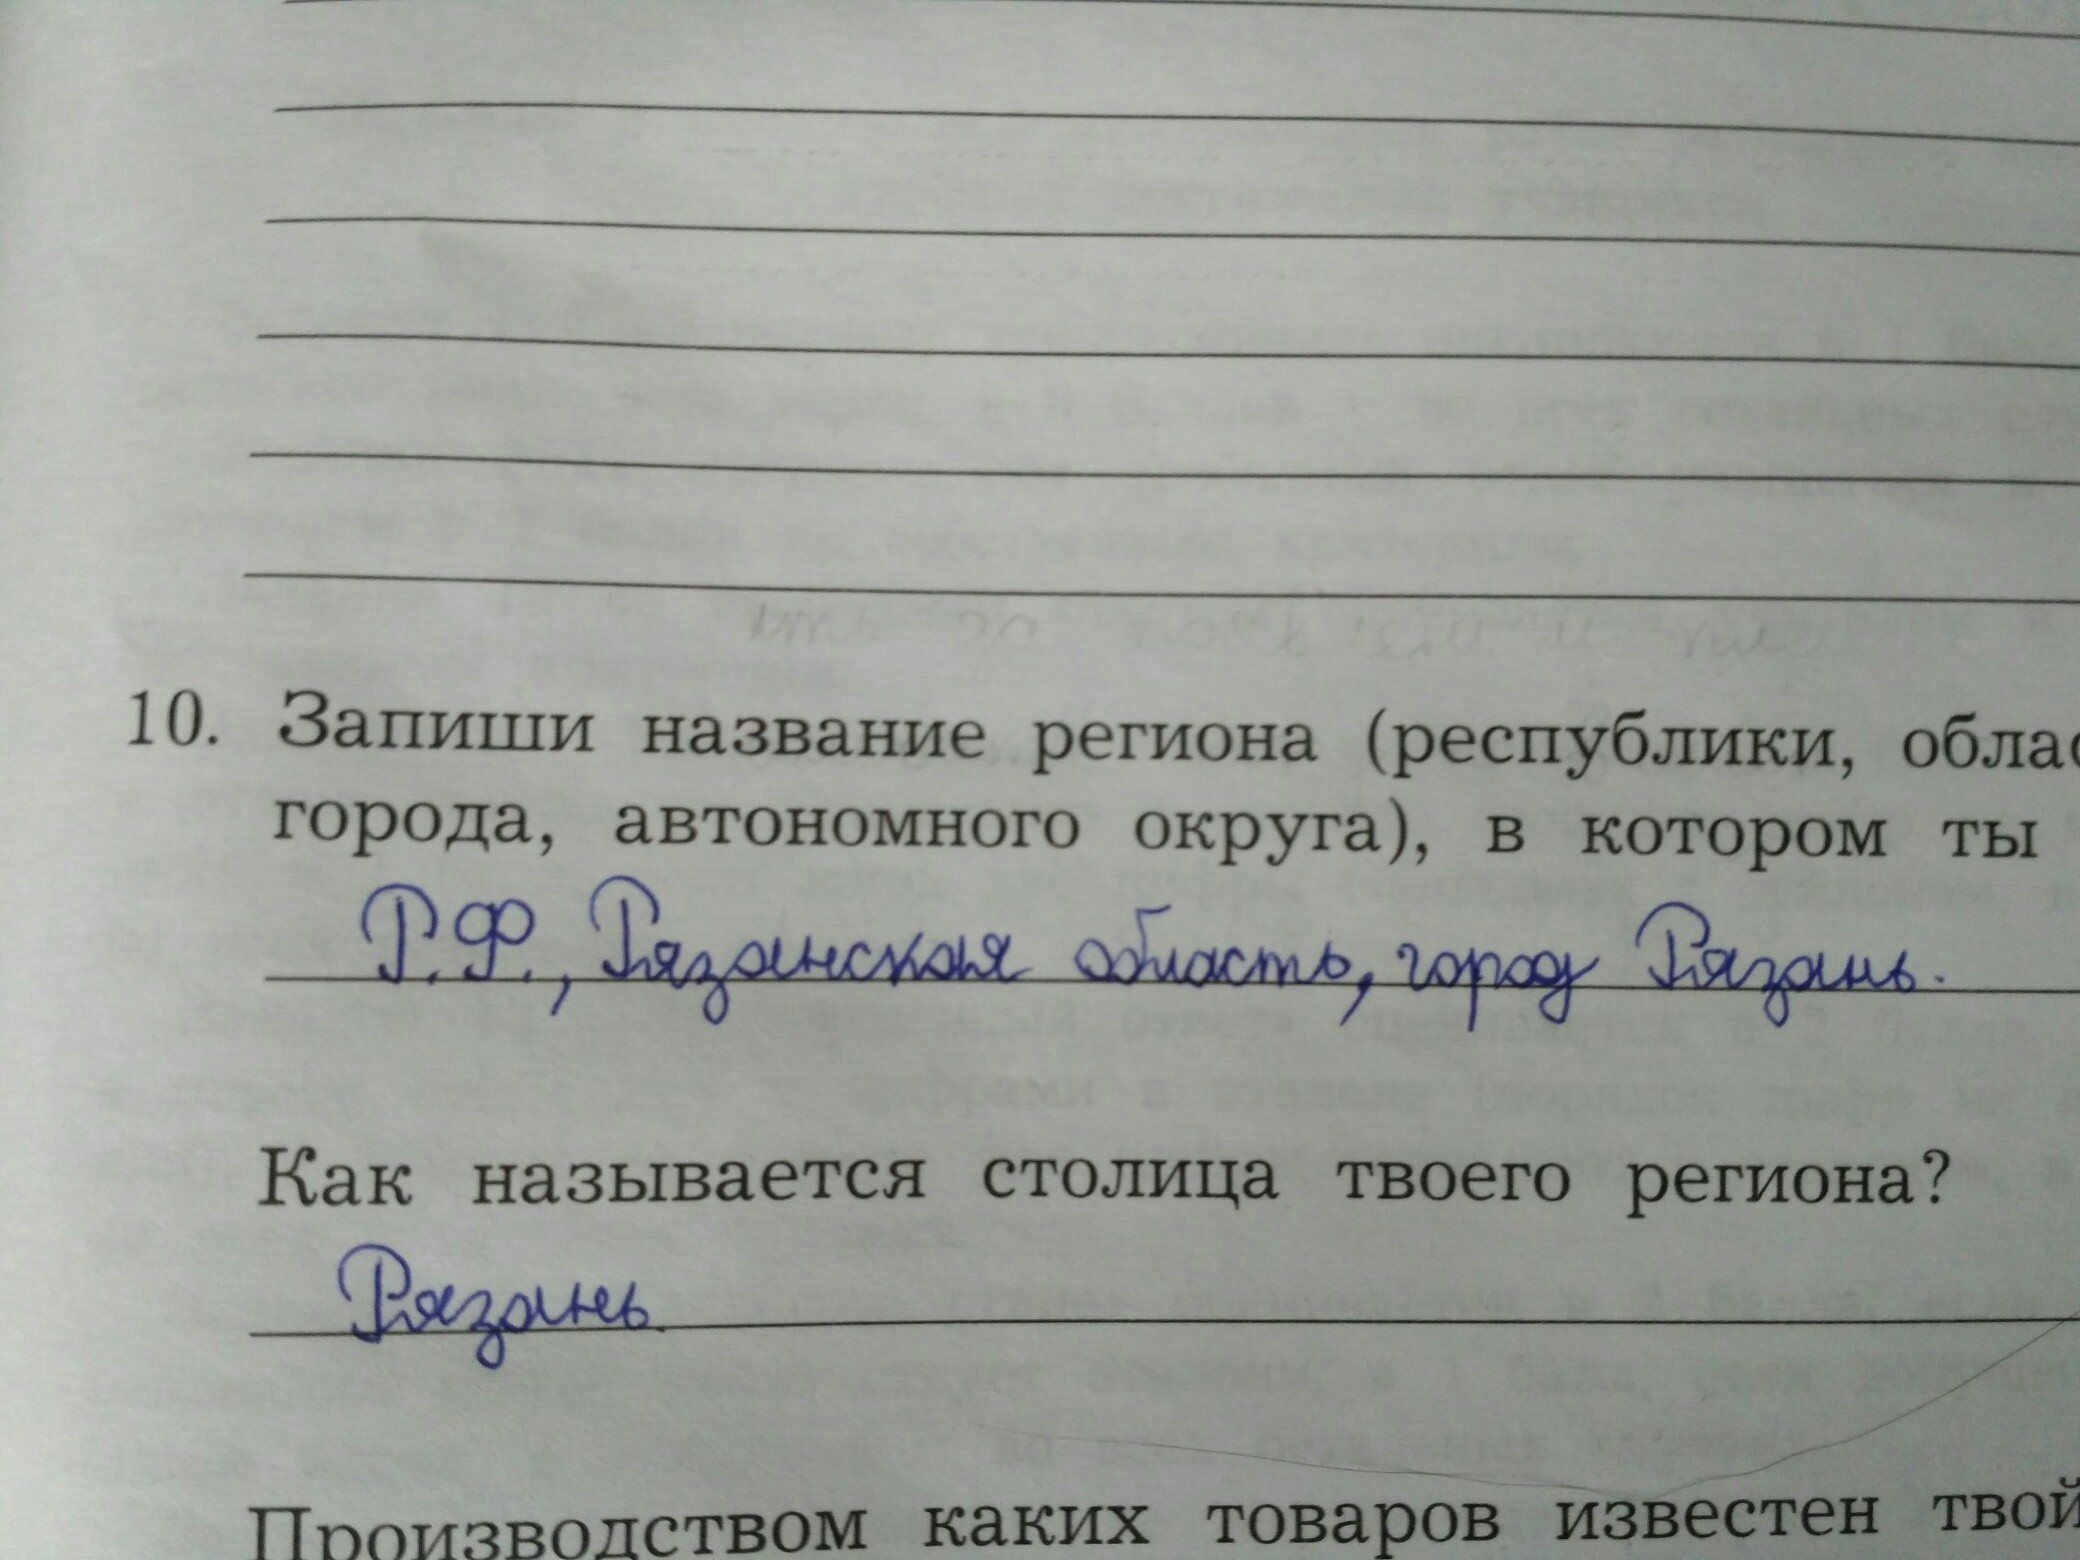 10. Запиши название региона (республики, облас
города, автономного округа), в котором ты
Р.Ф., Рязанская область, город Рязань.
Как называется столица твоего региона?
Рязань.
Производством каких товаров известен твой